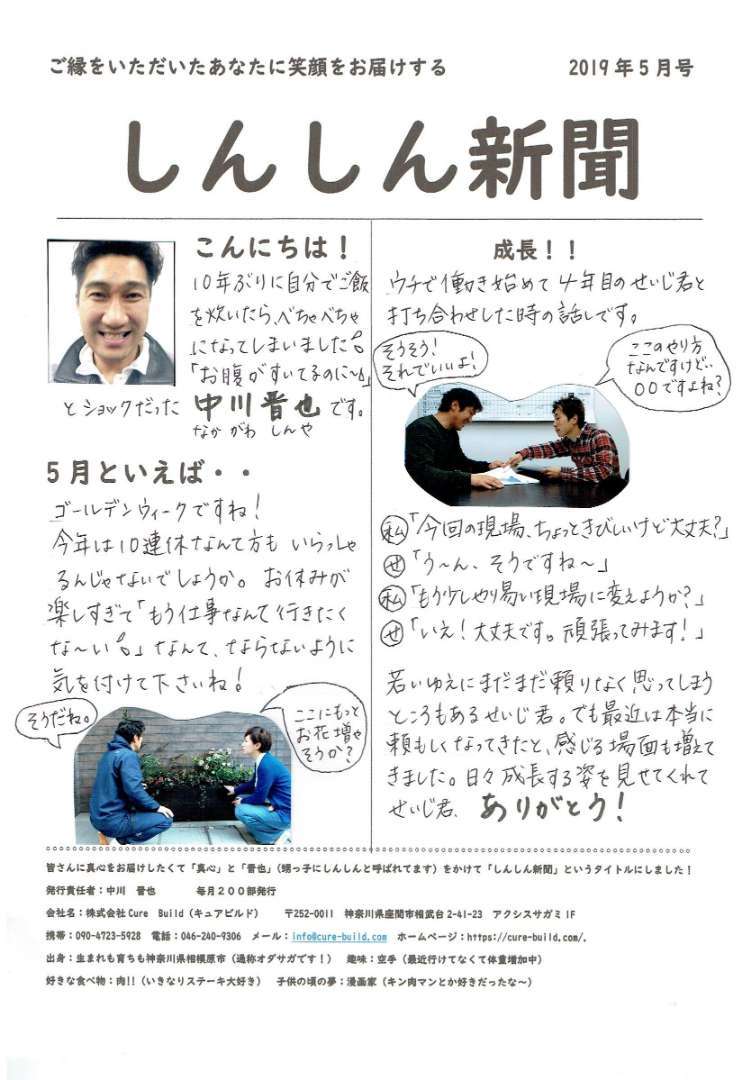 ご縁をいただいたあなたに笑顔をお届けする
2019年5月号
しんしん新聞
こんにちは！
10年ぶりに自分でご飯
を炊いたら、べちゃべちゃ
になってしまいました。
「お腹がすいてるのに〜。」
とショックだった 中川晋也です。
なかがわ しんや
5月といえば・・
ゴールデンウィークですね！
今年は10連休なんて方も いらっしゃ
るんじゃないでしょうか。お休みが
楽しすぎて「もう仕事なんて行きたく
な〜い。」なんて、ならないように
気を付けて下さいね！
そうだね。
ここにもっと
お花増や
そうか？
成長！！
ウチで働き始めて4年目のせいじ君と
打ち合わせした時の話しです。
そうそう！
それでいいよ！
ここのやり方
なんですけど..
〇〇ですよね？
私「今回の現場、ちょっときびしいけど大丈夫？」
せ「う〜ん、そうですね〜」
私「もう少しやり易い現場に変えようか？」
せ「いえ！大丈夫です。頑張ってみます！」
若いゆえにまだまだ頼りなく思ってしまう
ところもあるせいじ君。でも最近は本当に
頼もしくなってきたと、感じる場面も増えて
きました。日々成長する姿を見せてくれて
せいじ君、ありがとう！
皆さんに真心をお届けしたくて「真心」と「晋也」（甥っ子にしんしんと呼ばれてます）をかけて「しんしん新聞」というタイトルにしました！
発行責任者：中川 晋也 毎月２００部発行
会社名：株式会社Cure Build（キュアビルド） 〒252-0011 神奈川県座間市相武台2-41-23 アクシスサガミ1F
携帯：090-4723-5928 電話：046-240-9306 メール：info@cure-build.com ホームページ：https://cure-build.com/.
出身：生まれも育ちも神奈川県相模原市（通称オダサガです！） 趣味：空手（最近行けてなくて体重増加中）
好きな食べ物：肉!!（いきなりステーキ大好き） 子供の頃の夢：漫画家（キン肉マンとか好きだったな〜）